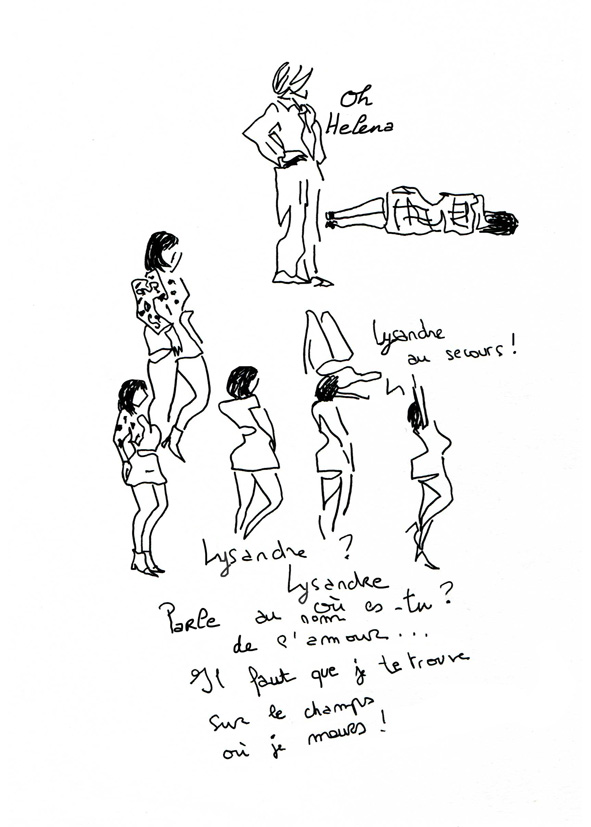 Oh
Helena
Lysandre
au secours !
Lysandre ?
Lysandre
où es-tu ?
Parle au nom
de l'amour...
Il faut que je te trouve
sur le champs
où je meurs !